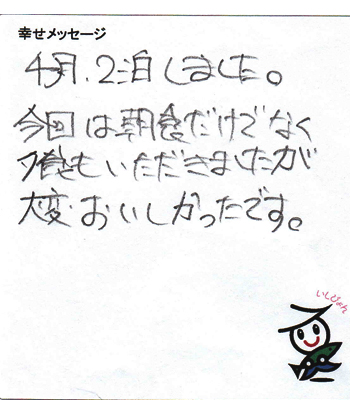 幸せメッセージ
4月.2泊しました。
今回は朝食だけでなく
夕食もいただきましたが
大変おいしかったです。
いしぴょん